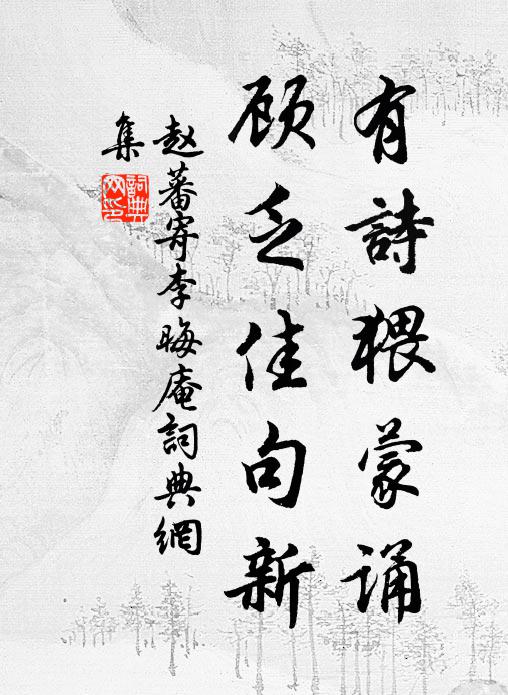 有詩猥蒙诵
顾乏佳句新
赵蕃寄李晦庵詞典網
集
詞典网印